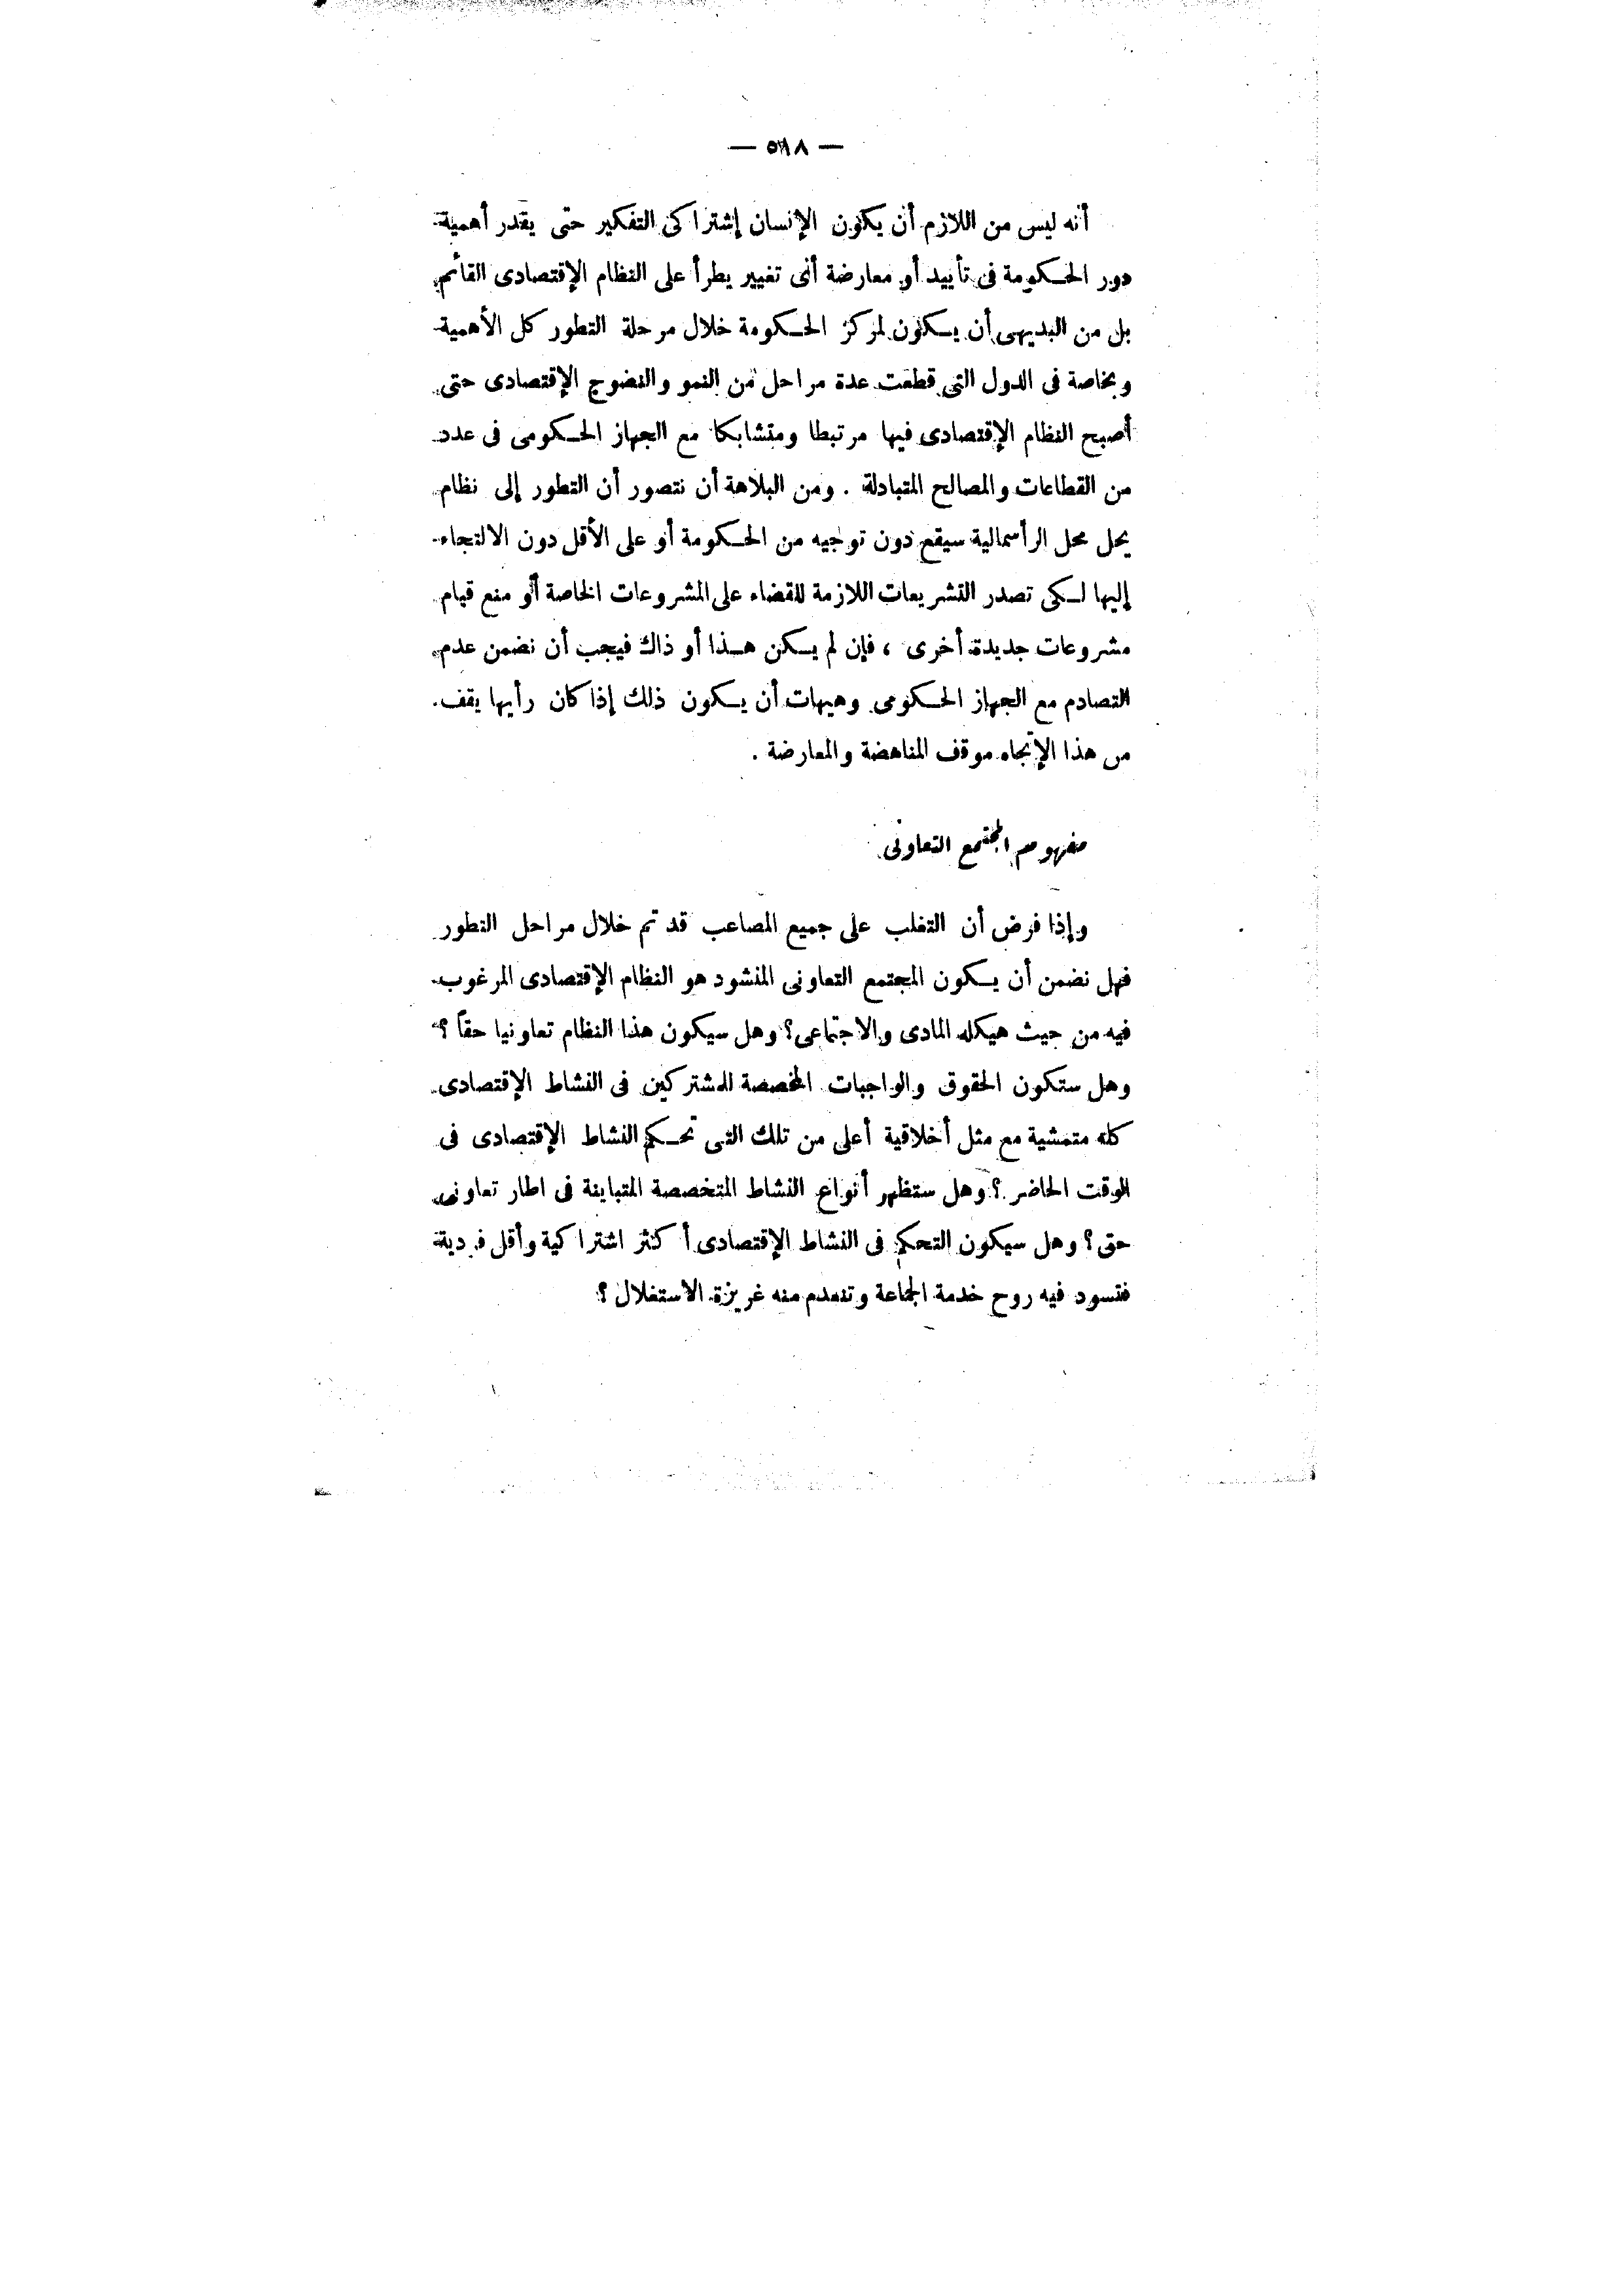 أنه ليس من اللازم أن يكون الإنسان إشتراكى التفكير حتى يقدر أهمية
دور الحكومة فى تأييد أو معارضة أى تغيير يطرأ على النظام الإقتصادى القائم
بل من البديهى أن يكون لمركز الحكومة خلال مرحلة التطور كل الأهمية
وبخاصة فى الدول التى قطعت عدة مراحل من النمو والنضوج الإقتصادى حتى
أصبح النظام الإقتصادى فيها مرتبطا ومتشابكا مع الجهاز الحكومى فى عدد
من القطاعات والمصالح المتبادلة . ومن البلاهة أن نتصور أن التطور إلى نظام
يحل محل الرأسمالية سيقع دون توجيه من الحكومة أو على الأقل دون الالتجاء
إليها لكى تصدر التشريعات اللازمة للقضاء على المشروعات الخاصة أو منع قيام
مشروعات جديدة أخرى ، فإن لم يكن هذا أو ذاك فيجب أن نضمن عدم
التصادم مع الجهاز الحكومى وهيهات أن يكون ذلك إذا كان رأيها يقف
من هذا الإتجاه موقف المناهضة والمعارضة .
مفهوم المجتمع التعاونى
وإذا فرض أن التغلب على جميع المصاعب قد تم خلال مراحل التطور
فهل نضمن أن يكون المجتمع التعاونى المنشود هو النظام الإقتصادى المرغوب
فيه من حيث هيكله المادى والاجتماعى؟ وهل سيكون هذا النظام تعاونيا حقاً ؟
وهل ستكون الحقوق والواجبات المخصصة للمشتركين فى النشاط الإقتصادى
كله متمشية مع مثل أخلاقية أعلى من تلك التى تحكم النشاط الإقتصادى فى
الوقت الحاضر ؟ وهل ستظهر أنواع النشاط المتخصصة المتباينة فى اطار تعاونى
حتى؟ وهل سيكون التحكم فى النشاط الإقتصادى أكثر اشتراكية وأقل فردية
فتسود فيه روح خدمة الجماعة وتنعدم منه غريزة الاستغلال ؟